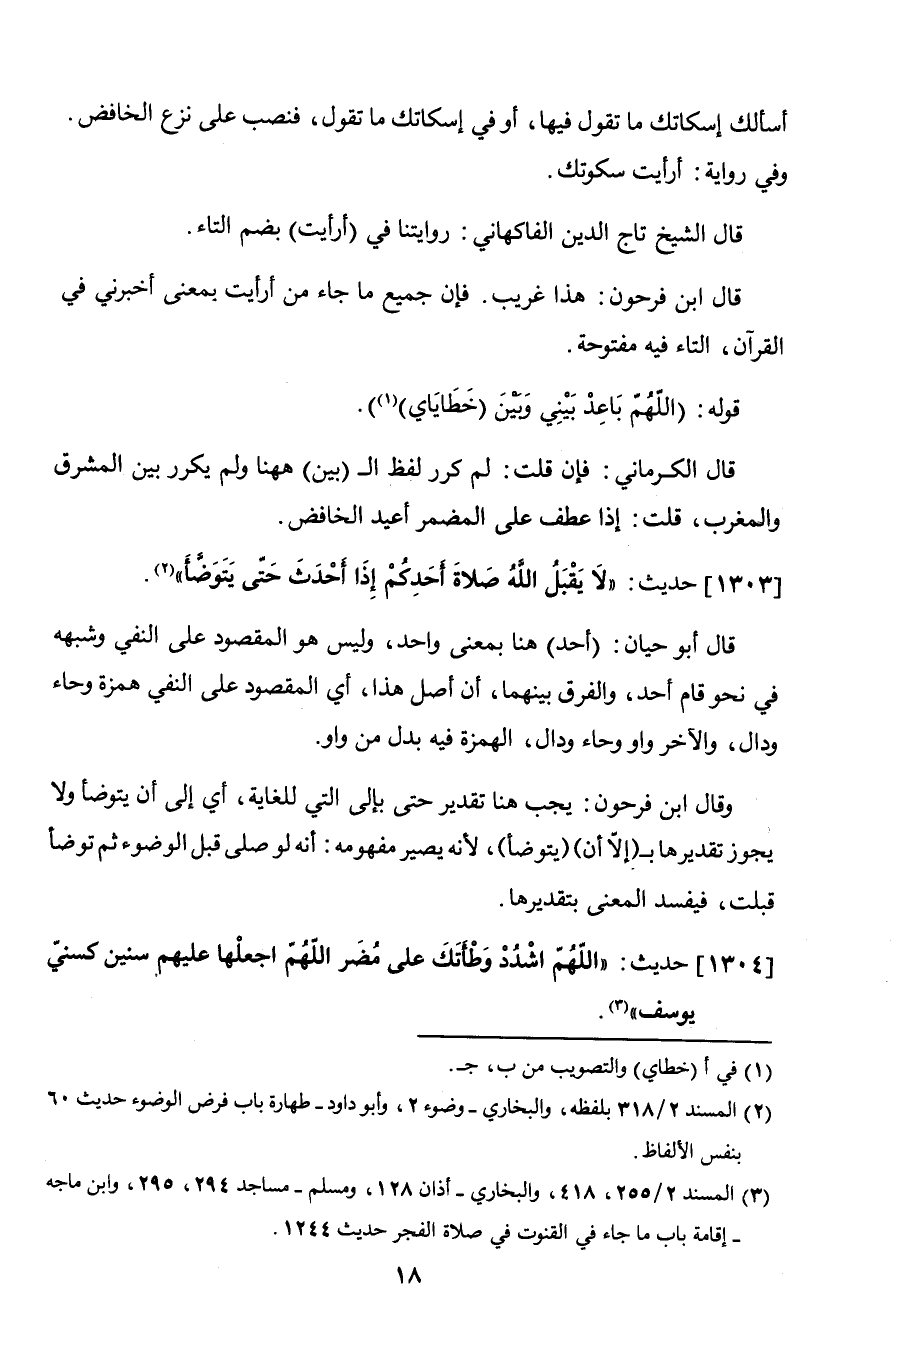 أسألك إسكاتك ما تقول فيها، أو في إسكاتك ما تقول، فنصب على نزع الخافض.
وفي رواية: أرأيت سكوتك.
قال الشيخ تاج الدين الفاكهاني: روايتنا في (أرأيت) بضم التاء.
قال ابن فرحون: هذا غريب. فإن جميع ما جاء من أرأيت بمعنى أخبرني في
القرآن، التاء فيه مفتوحة.
قوله: (اللّهُمّ بَاعِدْ بَيْنِي وَبَيْنَ (خَطَايَاي)(١)).
قال الكرماني: فإن قلت: لم كرر لفظ الـ (بين) ههنا ولم يكرر بين المشرق
والمغرب، قلت: إذا عطف على المضمر أعيد الخافض.
[١٣٠٣] حديث: «لَا يَقْبَلُ اللَّهُ صَلاةَ أَحَدِكُمْ إِذَا أَحْدَثَ حَتّى يَتَوَضَّأَ»(٢).
قال أبو حيان: (أحد) هنا بمعنى واحد، وليس هو المقصود على النفي وشبهه
في نحو قام أحد، والفرق بينهما، أن أصل هذا، أي المقصود على النفي همزة وحاء
ودال، والآخر واو وحاء ودال، الهمزة فيه بدل من واو.
وقال ابن فرحون: يجب هنا تقدير حتى بإلى التي للغاية، أي إلى أن يتوضأ ولا
يجوز تقديرها بـ(إلّا أن)(يتوضأ)، لأنه يصير مفهومه: أنه لو صلى قبل الوضوء ثم توضأ
قبلت، فيفسد المعنى بتقديرها.
[١٣٠٤] حديث: «اللّهُمّ اشْدُدْ وَطْأَتَكَ على مُضَر اللّهُمّ اجعلْها عليهم سنين كسنيّ
يوسف»(٣).
(١) في أ (خطاي) والتصويب من ب، جـ.
(٢) المسند ٣١٨/٢ بلفظه، والبخاري ـ وضوء ٢، وأبو داود ـ طهارة باب فرض الوضوء حديث ٦٠
بنفس الألفاظ.
(٣) المسند ٢٥٥/٢، ٤١٨، والبخاري ـ أذان ١٢٨، ومسلم ـ مساجد ٢٩٤، ٢٩٥، وابن ماجه
ـ إقامة باب ما جاء في القنوت في صلاة الفجر حديث ١٢٤٤.
١٨